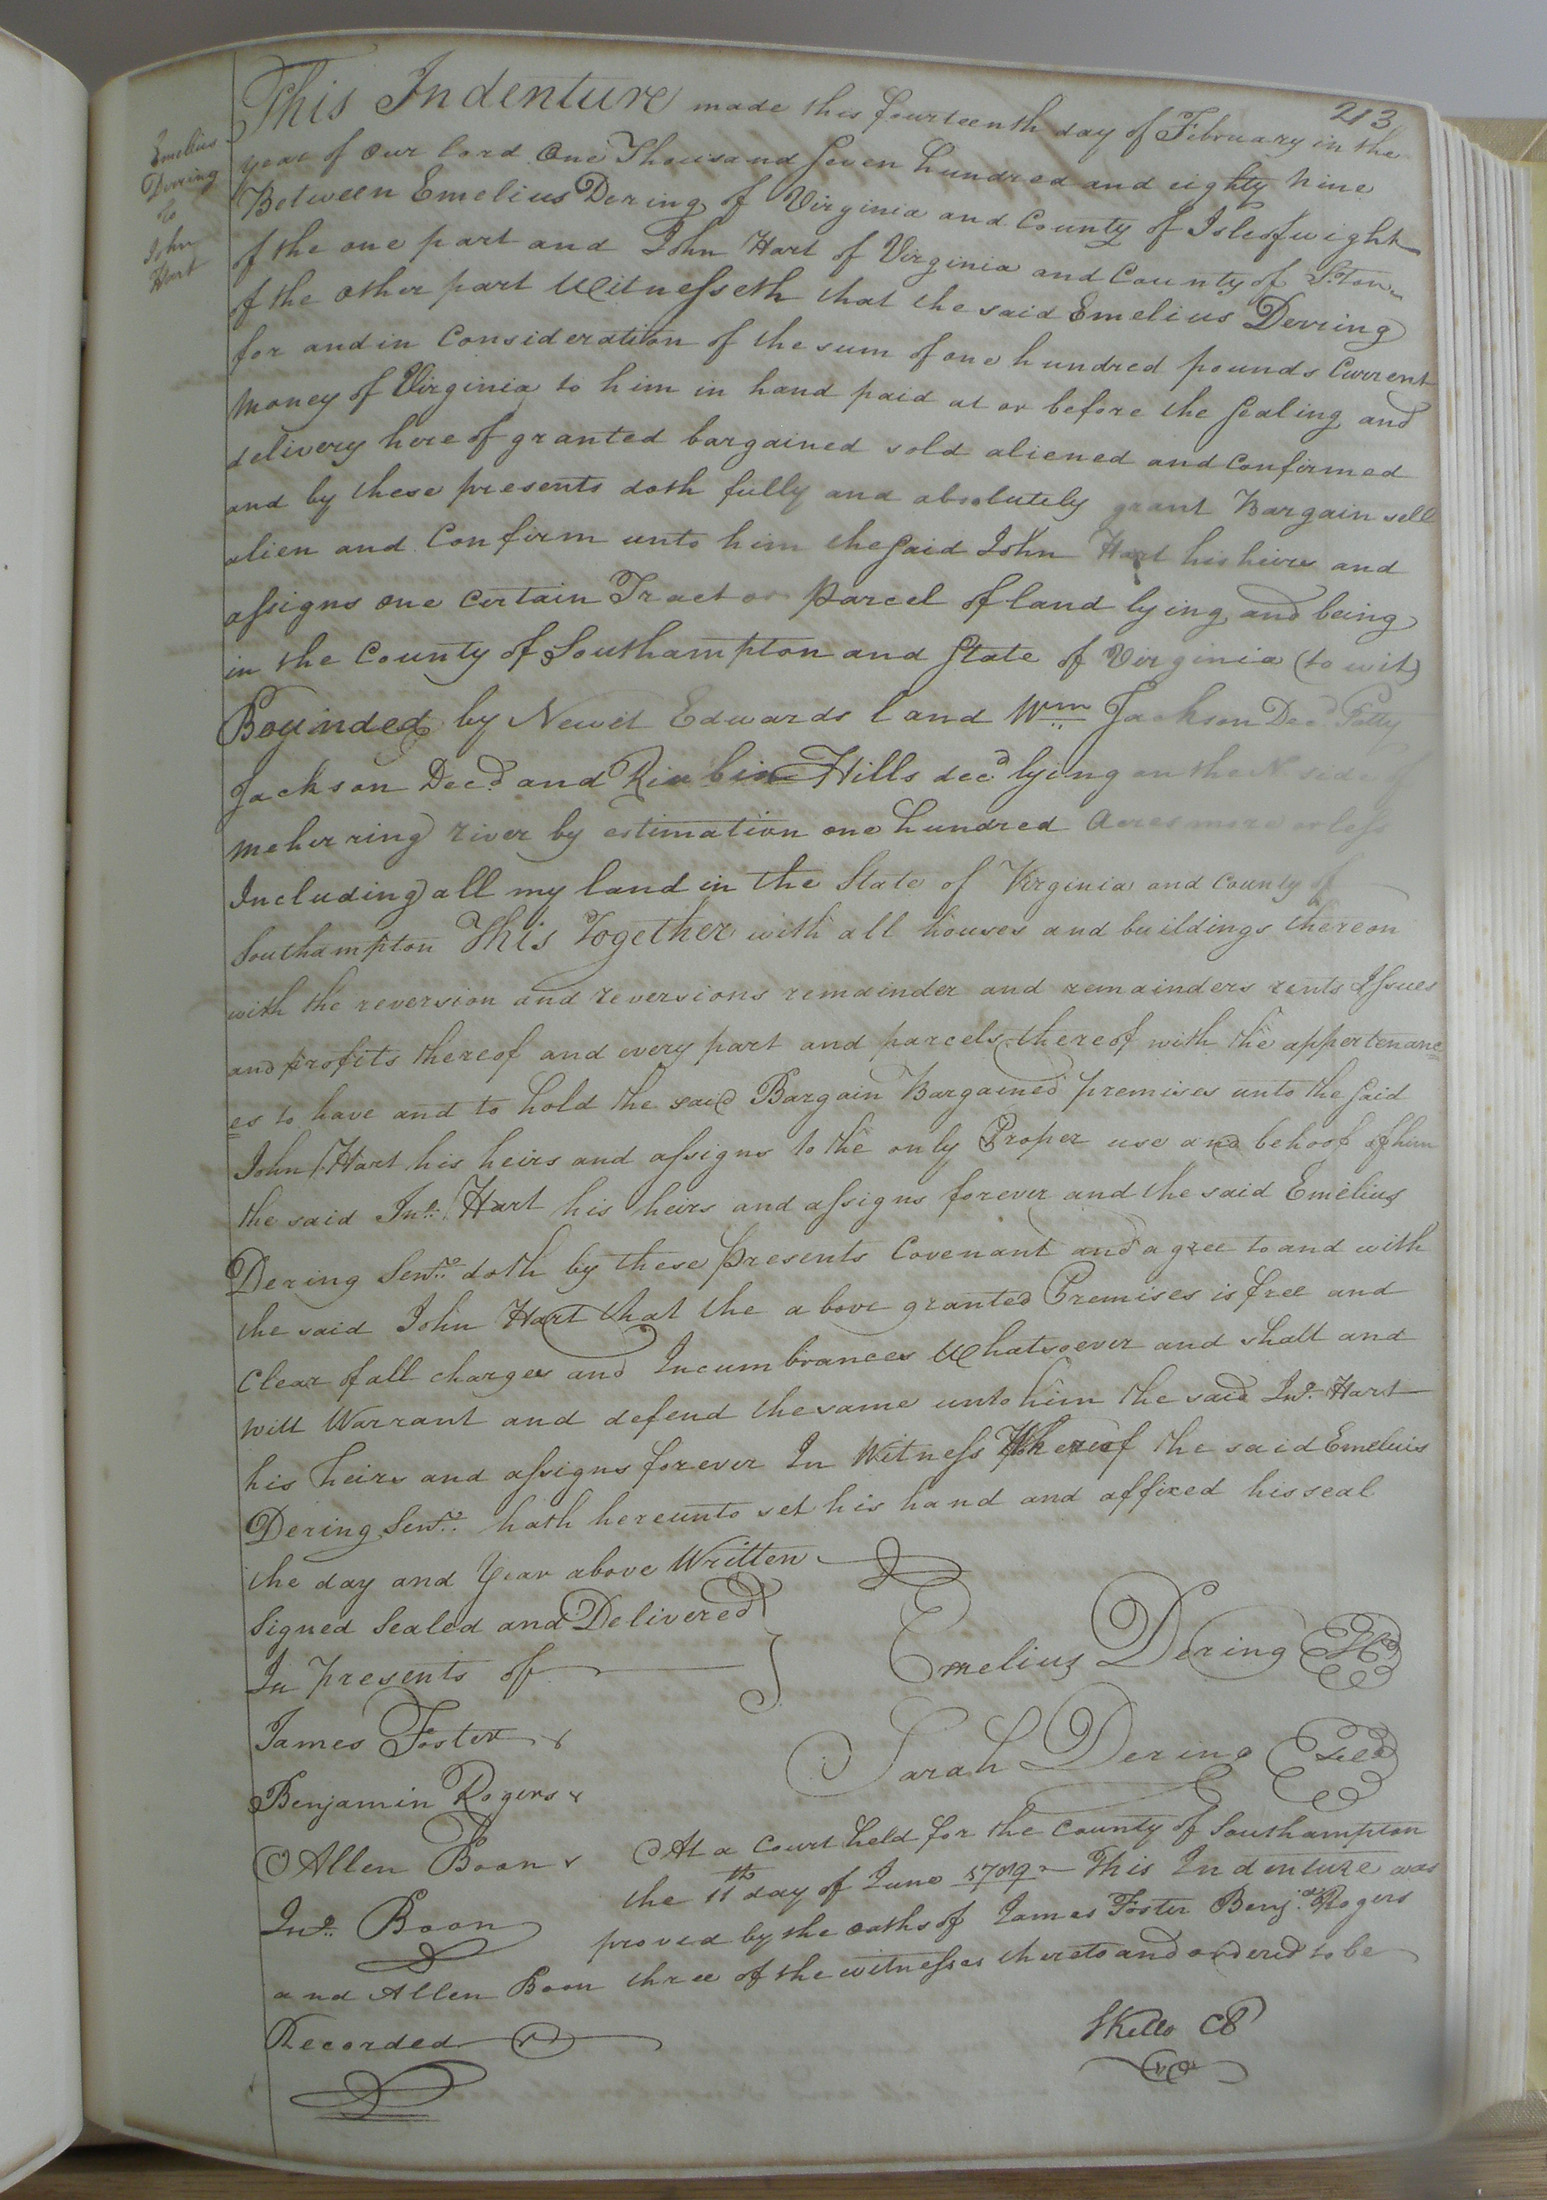 213
Emelius
Derring
to
John
Hart
This Indenture made this fourteenth day of February in the
year of our lord One Thousand Seven hundred and eighty Nine
Between Emelius Dering of Virginia and County of Isleofwight
of the one part and John Hart of Virginia and County of S.ton
of the other part Witnesseth that the said Emelius Derring
for and in Consideration of the sum of one hundred pounds Current
Money of Virginia to him in hand paid at or before the Sealing and
delivery hereof granted bargained sold aliened and Confirmed
and by these presents doth fully and absolutely grant Bargain sell
alien and Confirm unto him the said John Hart his heirs and
assigns one certain Tract or parcel of land lying and being
in the County of Southampton and State of Virginia (to wit)
Bouinded by Newit Edwards land Wm Jackson Decd. Patty
Jackson Decd. and Hills decd lying on the N. side of
meherring river by estimation one hundred Acres more or less
Including all my land in the State of Virginia and County of
Southampton This Together with all houses and buildings thereon
with the reversion and reversions remainder and remainders rents Issues
and profits thereof and every part and parcels thereof with the appertenanc=
es to have and to hold the said Bargain Bargained premises unto the said
John Hart his heirs and assigns to the only Proper use and behoof of him
the said Jno. Hart his heirs and assigns forever and the said Emelius
Dering Senr. doth by these presents Covenant and agree to and with
the said John Hart that the above granted Premises is free and
Clear of all charges and Incumbrances Whatsoever and shall and
will Warrant and defend the same unto him the said Jno. Hart
his heirs and assigns forever In Witness Whereof the said Emelius
Dering Senr. hath hereunto set his hand and affixed his seal
the day and Year above Written
Signed Sealed and Delivered
In presents of
Emelius Dering
James Foster
Sarah Dering Seal
Benjamin Rogers
Allen Boon
At a Court held for the County of Southampton
the 11th day of June 1789 This Indenture was
Jno. Boon
proved by the oaths of James Foster Benja. Rogers
and Allen Boon three of the witnesses thereto and ordered to be
Recorded